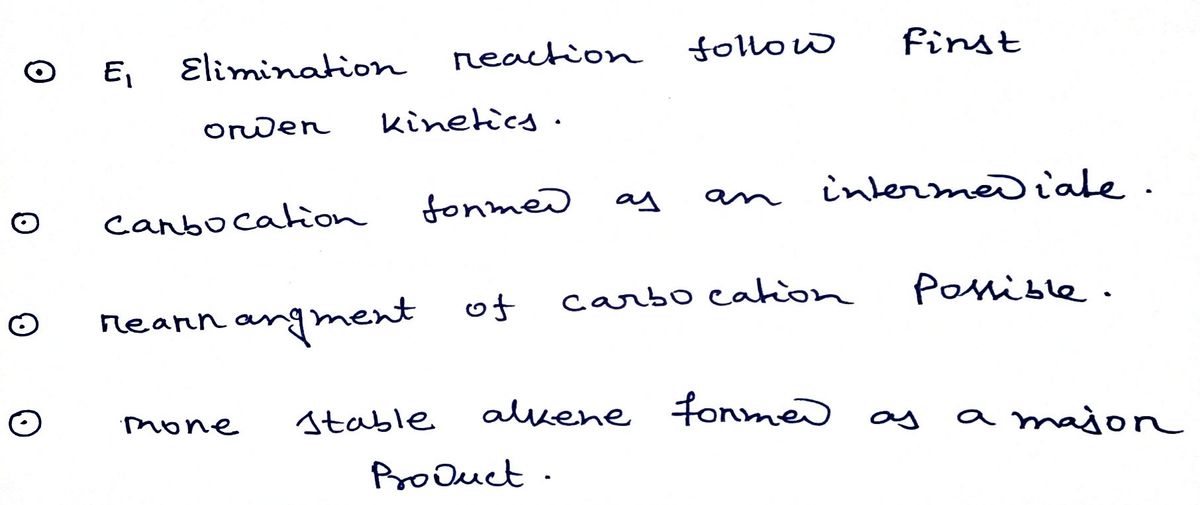 ⊙ E₁ Elimination reaction follow first
order kinetics.
⊙ carbocation formed as an intermediate.
⊙ rearrangment of carbocation Possible.
⊙ more stable alkene formed as a major
Product.